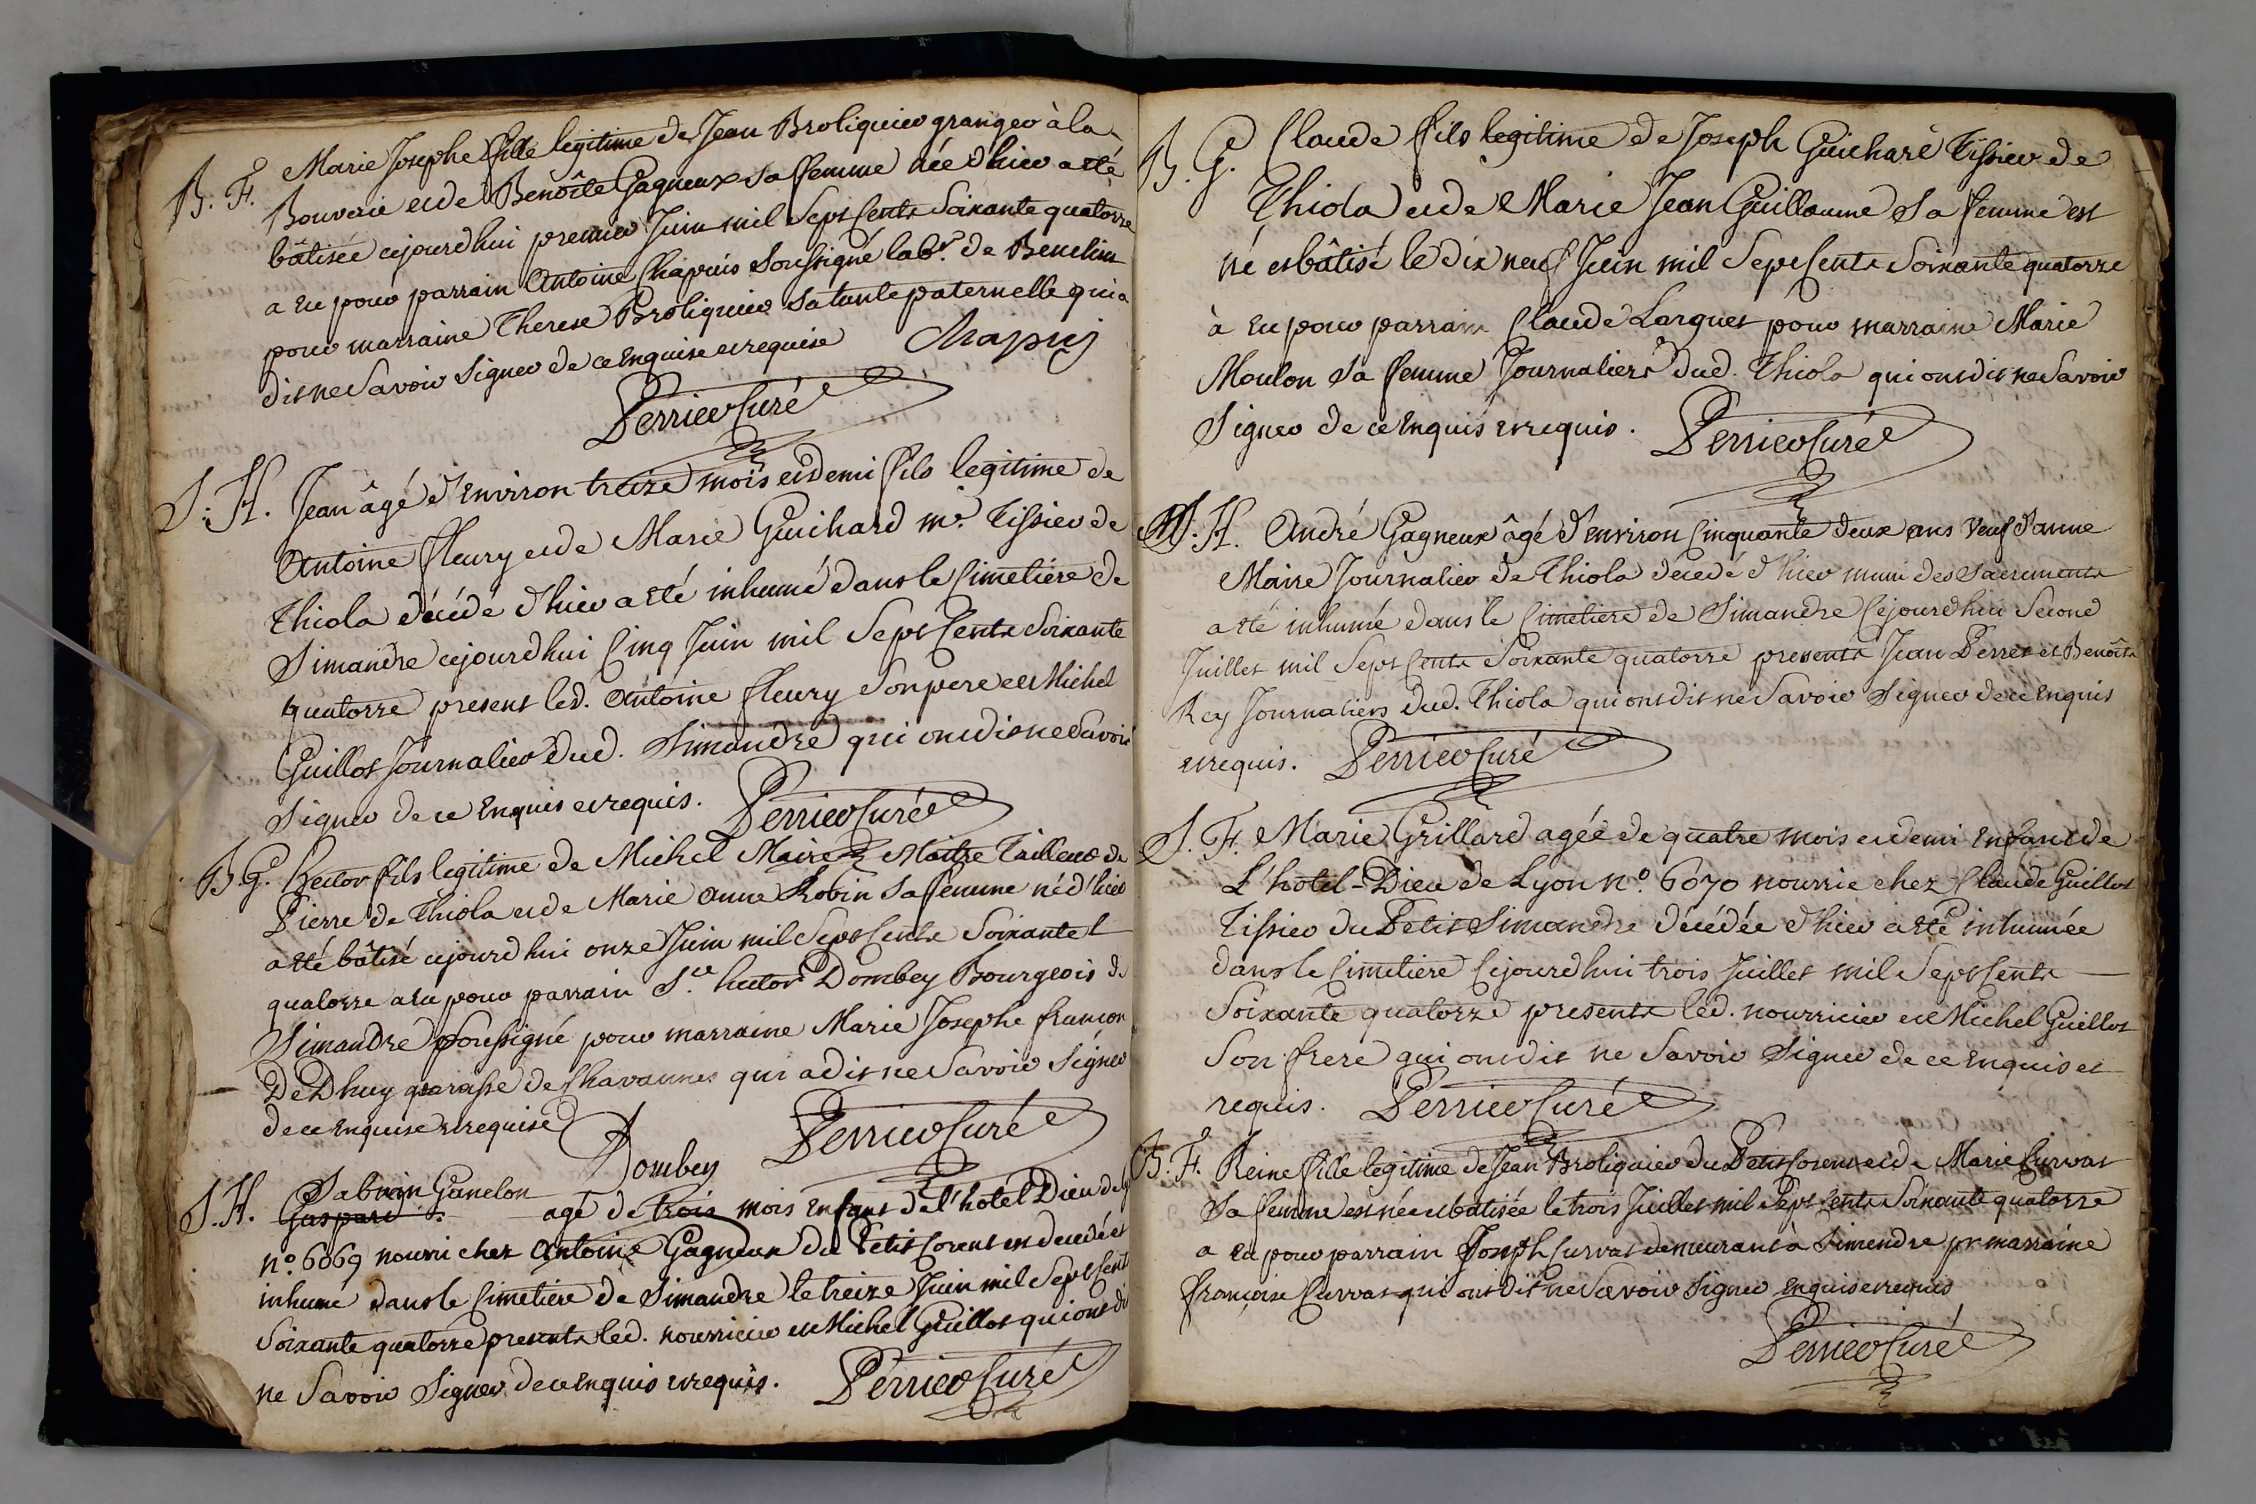 B. F. Marie Josephe fille legitime de Jean Broliquier granger à la
Bouverie et de Benoîte Gagneux sa femme née d'hier a eté
bâtisée cejourdhui premier Juin mil Sept Cents Soixante quatorze
a eu pour parrain Antoine Chapuis Soussigné lab.r de
pour marraine Therese Broliquier sa tante paternelle qui a
dit ne Savoir Signer de ce Enquise et requise Chapuij
Perrier Curé
S. H. Jean âgé d'Environ treize mois et demi fils legitime de
Antoine fleury et de Marie Guichard m.e Tissier de
Thiola décédé d'hier a eté inhumé dans le Cimetiere de
Simandre cejourdhui Cinq Juin mil Sept Cents Soixante
quatorze present led. Antoine fleury Son pere et Michel
Guillot Journalier dud. Simandre qui ont dit ne Savoir
Signer de ce Enquis et requis. Perrier Curé
B. G. Hector fils legitime de Michel Maire Maitre Tailleur de
Pierre de Thiola et de Marie Anne Robin Sa femme né d'hier
a eté bâtisé cejourdhui onze Juin mil Sept Cents Soixante et
quatorze a eu pour parrain S.r hector Dombey Bourgeois de
Simandre Soussigné pour marraine Marie Josephe francon
De Dhuy paroisse de Chavannes qui a dit ne Savoir Signer
de ce Enquise et requise
Dombey Perrier Curé
S. H. Sabwin Ganelon
Gaspard agé de trois mois Enfant de l'hotel Dieu de
n.o 6069 nourri chez Antoine Gagneux du Petit Corent est decedé et
inhumé dans le Cimetiere de Simandre le treize Juin mil Sept Cents
Soixante quatorze presents led. nourricier et Michel Guillot qui ont dit
ne Savoir Signer de ce Enquis et requis. Perrier Curé
B. G. Claude fils legitime de Joseph Guichard Tissier de
Thiola et de Marie Jean Guillaume Sa femme est
né et bâtisé le dix neuf Juin mil Sept Cents Soixante quatorze
à eu pour parrain Claude Larguet pour marraine Marie
Moulon Sa femme Journaliers dud. Thiola qui ont dit ne Savoir
Signer de ce Enquis et requis. Perrier Curé
S. H. André Gagneux âgé d'Environ Cinquante deux ans Veuf d'anne
Maire Journalier de Thiola décedé d'hier muni des Sacrements
a eté inhumé dans le Cimetiere de Simandre Cejourdhui Second
Juillet mil Sept Cents Soixante quatorze presents Jean Perret et Benoît
Rey Journaliers dud. Thiola qui ont dit ne Savoir Signer de ce Enquis
et requis. Perrier Curé
S. F. Marie Grillard agée de quatre mois et demi Enfant de
L'hotel-Dieu de Lyon n.o 6070 nourrie chez Claude Guillot
Tissier du Petit Simandre décédée d'hier a eté inhumée
dans le Cimetiere Cejourdhui trois Juillet mil Sept Cents
Soixante quatorze presents led. nourricier et Michel Guillot
Son frere qui ont dit ne Savoir Signer de ce Enquis et
requis. Perrier Curé
B. F. Reine fille legitime de Jean Broliquier du Petit Corent et de Marie Curvat
Sa femme est née et batisée le trois Juillet mil Sept Cents Soixante quatorze
a eu pour parrain Joseph Curvat demeurant à Simandre pr marraine
françoise Curvat qui ont dit ne Savoir Signer Enquis et requis
Perrier Curé